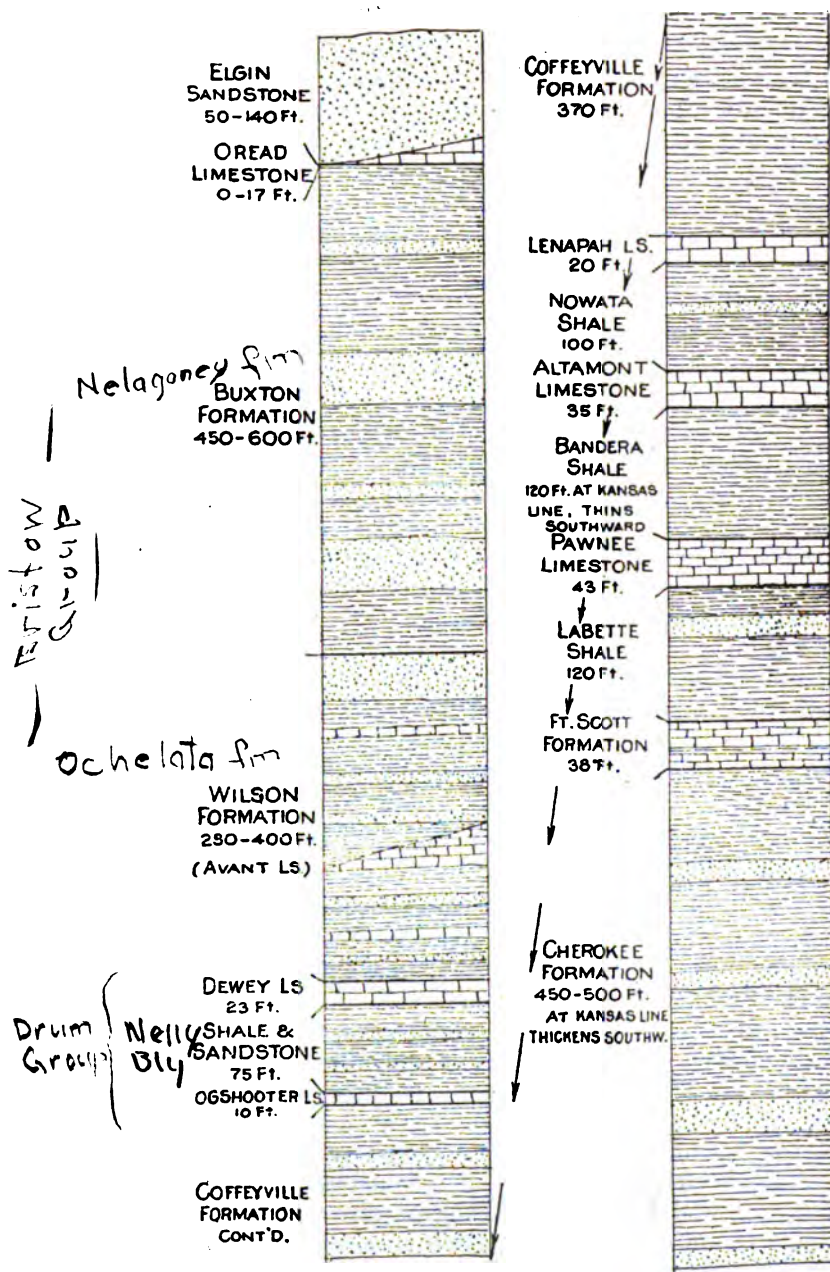 ELGIN
SANDSTONE
50-140 Ft.
OREAD
LIMESTONE
0-17 Ft.
Nelagoney fm
BUXTON
FORMATION
450-600 Ft.
Bristow
Group
Ochelata fm
WILSON
FORMATION
280-400 Ft.
(AVANT LS.)
DEWEY LS
23 Ft.
Drum
Group
Nelly
Bly
SHALE &
SANDSTONE
75 Ft.
OGSHOOTER LS
10 Ft.
COFFEYVILLE
FORMATION
CONT'D.
COFFEYVILLE
FORMATION
370 Ft.
LENAPAH LS.
20 Ft.
NOWATA
SHALE
100 Ft.
ALTAMONT
LIMESTONE
35 Ft.
BANDERA
SHALE
120 Ft. AT KANSAS
LINE, THINS
SOUTHWARD
PAWNEE
LIMESTONE
43 Ft.
LABETTE
SHALE
120 Ft.
FT. SCOTT
FORMATION
38 Ft.
CHEROKEE
FORMATION
450-500 Ft.
AT KANSAS LINE
THICKENS SOUTHW.